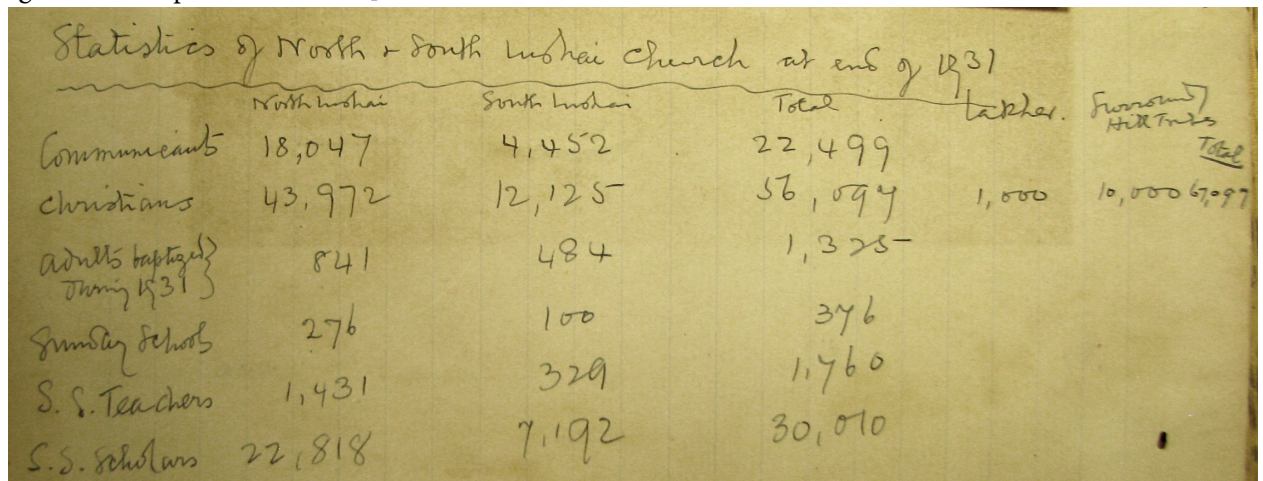 Statistics of North & South Lushai Church at end of 1931
North Lushai South Lushai Total Lakher. Surround'g Hill Tribes Total
Communicants 18,047 4,452 22,499
Christians 43,972 12,125 56,097 1,000 10,000 67,097
Adults baptized during 1931 } 841 484 1,325
Sunday Schools 276 100 376
S. S. Teachers 1,431 329 1,760
S.S. Scholars 22,818 7,192 30,010